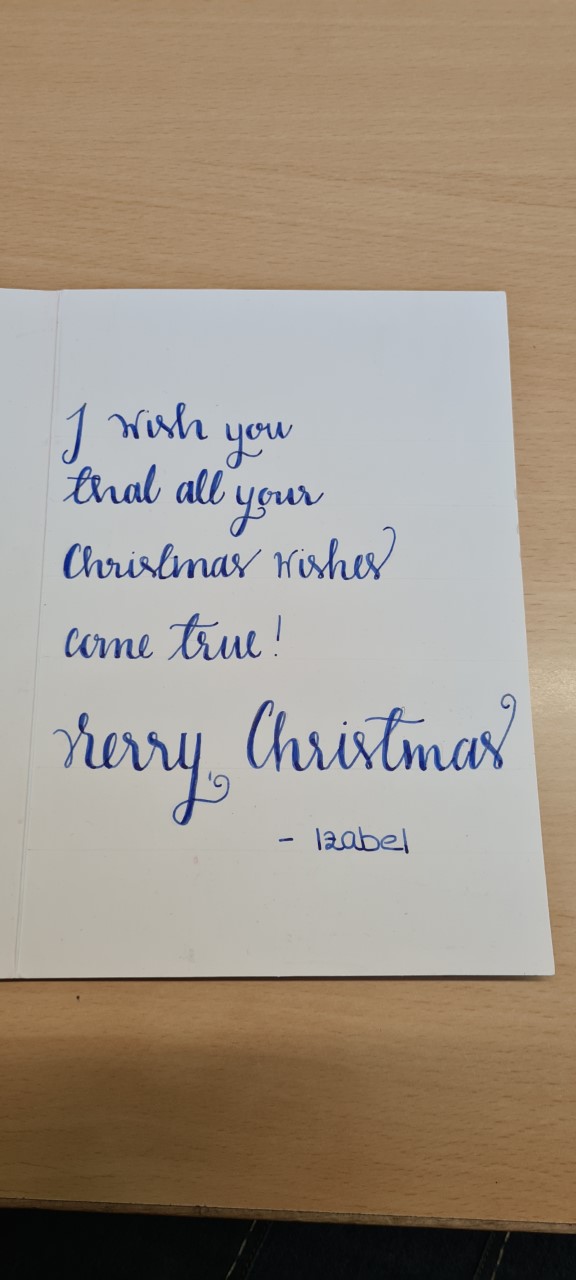 I wish you
that all your
Christmas wishes
come true!
Merry Christmas
- Izabel